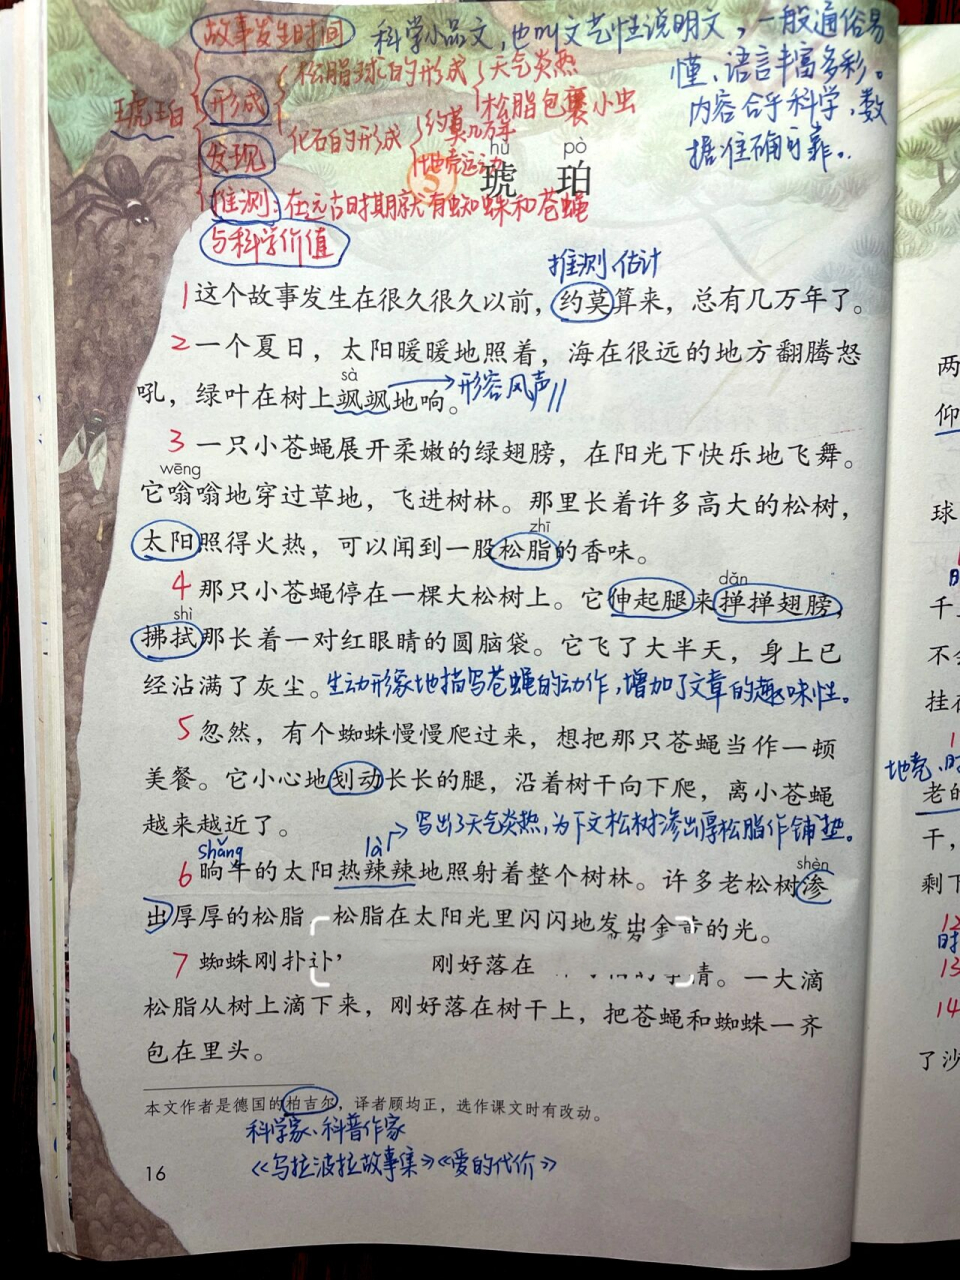 故事发生时间
科学小品文,也叫文艺性说明文,一般通俗易
懂、语言丰富多彩。
内容合乎科学,数
据准确可靠。
琥珀
形成
松脂球的形成
天气炎热
松脂包裹小虫
化石的形成
约莫几万年
地壳运动
发现
推测:在远古时期就有蜘蛛和苍蝇
与科学价值
hǔ pò
5 琥 珀
推测、估计
1 这个故事发生在很久很久以前,约莫算来,总有几万年了。
2 一个夏日,太阳暖暖地照着,海在很远的地方翻腾怒
sà
吼,绿叶在树上飒飒地响。形容风声
3 一只小苍蝇展开柔嫩的绿翅膀,在阳光下快乐地飞舞。
wēng
它嗡嗡地穿过草地,飞进树林。那里长着许多高大的松树,
zhī
太阳照得火热,可以闻到一股松脂的香味。
4 那只小苍蝇停在一棵大松树上。它伸起腿来掸掸翅膀,
dǎn
shì
拂拭那长着一对红眼睛的圆脑袋。它飞了大半天,身上已
经沾满了灰尘。生动形象地描写苍蝇的动作,增加了文章的趣味性。
5 忽然,有个蜘蛛慢慢爬过来,想把那只苍蝇当作一顿
美餐。它小心地划动长长的腿,沿着树干向下爬,离小苍蝇
越来越近了。
写出了天气炎热,为下文松树渗出厚松脂作铺垫。
shǎng
là
shèn
6 晌午的太阳热辣辣地照射着整个树林。许多老松树渗
出厚厚的松脂 松脂在太阳光里闪闪地发出金 的光。
7 蜘蛛刚扑 刚好落在 情。一大滴
松脂从树上滴下来,刚好落在树干上,把苍蝇和蜘蛛一齐
包在里头。
本文作者是德国的柏吉尔,译者顾均正,选作课文时有改动。
科学家、科普作家
《乌拉波拉故事集》《爱的代价》
16
两
仰
球
千
不会
挂在
地壳、时
老的
干,
剩下
12
时
13
14
了沙